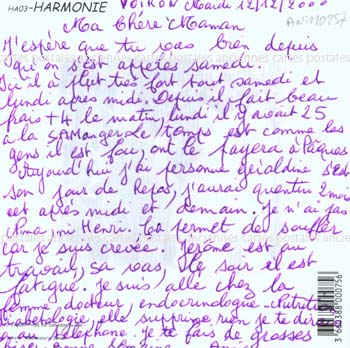 HA03-HARMONIE
VOIRON Mardi 12/12/2000
Ma Chère Maman
J'espère que tu vas bien depuis
qu'on s'est samedi
Qu'il a plut très fort tout samedi et
lundi après midi. Depuis il fait beau
frais +4 le matin, lundi il y avait 25
à la SAManger. Le temps est comme les
gens il est fou, ont le payera à Pâques
Aujourd'hui j'ai personne géraldine s'est
son jour de Repos, j'aurai quentin 2 mois
cet après midi et demain. Je n'ai pas
Nina, ni Henri. ça permet de souffler
car je suis crevée. Jérôme est au
travail, sa vas, le soir il est
fatigué. Je suis allé chez la
femme docteur endocrinologue. Nutrition
diabetologie, elle supprime rien je te dirai
au téléphone. Je te fais de grosses
3 660388 000756